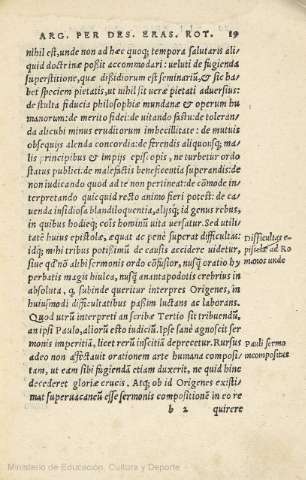 ARG. PER DES. ERAS. ROT. 19
nihil est, unde non ad hæc quoq; tempora salutaris ali-
quid doctrinæ possit accommodari: ueluti de fugienda
superstitione, quæ dißidiorum est seminariũ, & sic ha-
bet speciem pietatis, ut nihil sit ueræ pietati aduersius:
de stulta fiducia philosophiæ mundanæ & operum hu
manorum: de merito fidei: de uitando fastu: de toleran-
da alicubi minus eruditorum imbecillitate: de mutuis
obsequijs alenda concordia: de ferendis aliquousq; ma-
lis principibus & impijs episcopis, ne turbetur ordo
status publici: de maleficis beneficentia superandis: de
non iudicando quod ad te non pertineat: de cõmode in-
terpretando quicquid recto animo fieri potest: de ca-
uenda insidiosa blandiloquentia, alijsq; id genus rebus,
in quibus hodieq; cõis hominũ uita uersatur. Sed utili-
tatẽ huius epistolæ, æquat ac penè superat difficultas:
idq; mihi tribus potißimũ de causis accidere uidetur,
siue qđ nõ alibi sermonis ordo cõfusior, nusq̃ oratio hy
perbatis magis hiulca, nusq̃ anantapodotis crebrius in
absoluta, q̃ subinde queritur interpres Origenes, in
huiusmodi difficultatibus paßim luctans ac laborans.
Quod utrũ interpreti an scribæ Tertio sit tribuendũ,
an ipsi Paulo, aliorũ esto iudiciũ. Ipse sanè agnoscit ser
monis imperitiã, licet rerũ inscitiã deprecetur. Rursus
adeo non affectauit orationem arte humana composi-
tam, ut eam sibi fugiendã etiam duxerit, ne quid hinc
decederet gloriæ crucis. Atq; ob id Origenes existi-
mat superuacaneũ esse sermonis compositionẽ in eo re
b 2 quirere
Difficultas e-
pistolæ ad Ro
manos unde
Pauli sermo
incompositus
Ministerio de Educación, Cultura y Deporte